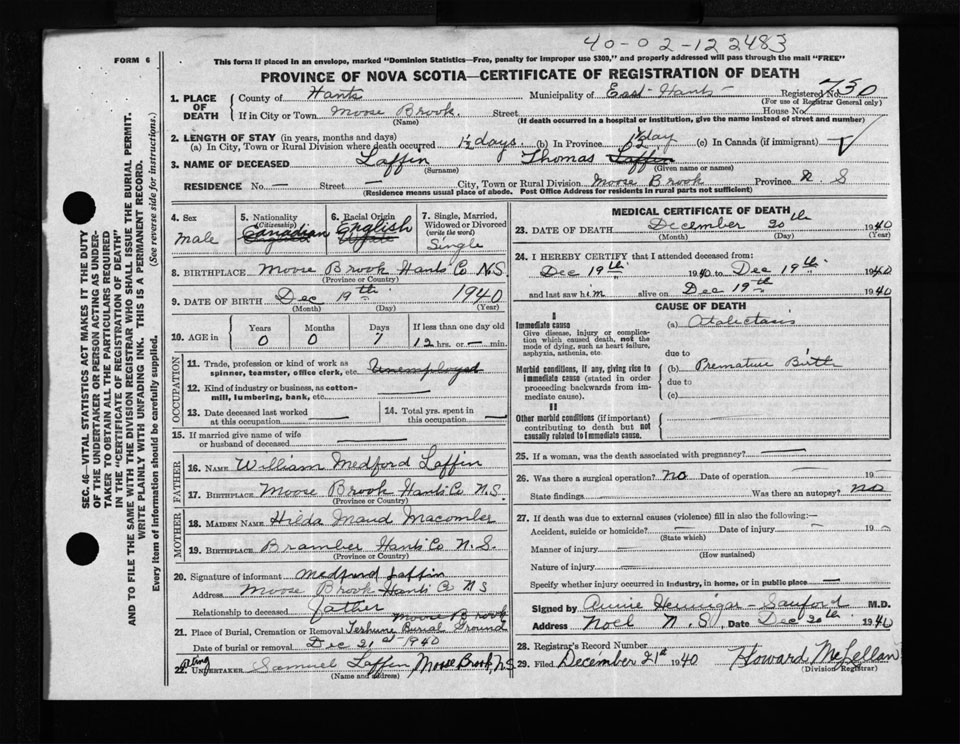 40-02-12 2483
FORM 6
This form if placed in an envelope, marked "Dominion Statistics—Free, penalty for improper use $300," and properly addressed will pass through the mail "FREE"
PROVINCE OF NOVA SCOTIA—CERTIFICATE OF REGISTRATION OF DEATH
1. PLACE OF DEATH
County of Hants Municipality of East-Hants Registered No. 730
(For use of Registrar General only)
If in City or Town Moose Brook Street House No.
(Name) (If death occurred in a hospital or institution, give the name instead of street and number)
2. LENGTH OF STAY (in years, months and days)
(a) In City, Town or Rural Division where death occurred 1½ days. (b) In Province 1½ day (c) In Canada (if immigrant)
3. NAME OF DECEASED Laffin Thomas Laffin
(Surname) (Given name or names)
RESIDENCE No. — Street — City, Town or Rural Division Moose Brook Province N. S
(Residence means usual place of abode. Post Office Address for residents in rural parts not sufficient)
4. Sex
male
5. Nationality
(Citizenship)
Canadian
6. Racial Origin
English
7. Single, Married, Widowed or Divorced
(write the word)
Single
8. BIRTHPLACE Moose Brook Hants Co N.S.
(Province or Country)
9. DATE OF BIRTH Dec 19th 1940
(Month) (Day) (Year)
10. AGE in
Years Months Days If less than one day old
0 0 1 12 hrs. or — min.
OCCUPATION
11. Trade, profession or kind of work as spinner, teamster, office clerk, etc. Unemployed
12. Kind of industry or business, as cotton-mill, lumbering, bank, etc. —
13. Date deceased last worked at this occupation —
14. Total yrs. spent in this occupation —
15. If married give name of wife or husband of deceased —
FATHER
16. NAME William Medford Laffin
17. BIRTHPLACE Moose Brook Hants Co N.S.
(Province or Country)
MOTHER
18. MAIDEN NAME Hilda Maud Macomber
19. BIRTHPLACE Bramber Hants Co N.S.
(Province or Country)
20. Signature of informant Medford Laffin
Address Moose Brook Hants Co N S
Relationship to deceased father
Moose Brook
21. Place of Burial, Cremation or Removal Terhune Burial Ground
Date of burial or removal Dec 21st 1940
Acting
22. UNDERTAKER Samuel Laffin Moose Brook, N.S.
(Name and address)
MEDICAL CERTIFICATE OF DEATH
23. DATE OF DEATH December 20th 1940
(Month) (Day) (Year)
24. I HEREBY CERTIFY that I attended deceased from:
Dec 19th 1940 to Dec 19th 1940
and last saw him alive on Dec 19th 1940
CAUSE OF DEATH
I
Immediate cause (a) Atalectasis
Give disease, injury or complication which caused death, not the mode of dying, such as heart failure, asphyxia, asthenia, etc.
due to
Morbid conditions, if any, giving rise to immediate cause (stated in order proceeding backwards from immediate cause).
(b) Premature Birth
due to
(c)
II
Other morbid conditions (if important) contributing to death but not causally related to immediate cause.
25. If a woman, was the death associated with pregnancy? —
26. Was there a surgical operation? no Date of operation — 19 —
State findings Was there an autopsy? no
27. If death was due to external causes (violence) fill in also the following:—
Accident, suicide or homicide? — Date of injury — 19 —
(State which)
Manner of injury —
(How sustained)
Nature of injury —
Specify whether injury occurred in industry, in home, or in public place —
Signed by Annie Hennigar-Sanford M.D.
Address Noel N.S. Date Dec 20th 1940
28. Registrar's Record Number
29. Filed December 21st 1940 Howard McLellan
(Division Registrar)
SEC. 46—VITAL STATISTICS ACT MAKES IT THE DUTY
OF THE UNDERTAKER OR PERSON ACTING AS UNDER-
TAKER TO OBTAIN ALL THE PARTICULARS REQUIRED
IN THE "CERTIFICATE OF REGISTRATION OF DEATH"
AND TO FILE THE SAME WITH THE DIVISION REGISTRAR WHO SHALL ISSUE THE BURIAL PERMIT.
WRITE PLAINLY WITH UNFADING INK. THIS IS A PERMANENT RECORD.
Every item of information should be carefully supplied. (See reverse side for instructions.)